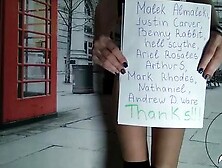 Malek Almaleki,
Justin Carver,
Benny Rabbit,
hell scythe,
Ariel Rosales,
Arthur S,
Mark Rhodes,
Nathaniel,
Andrew D. Ware
Thanks!!!